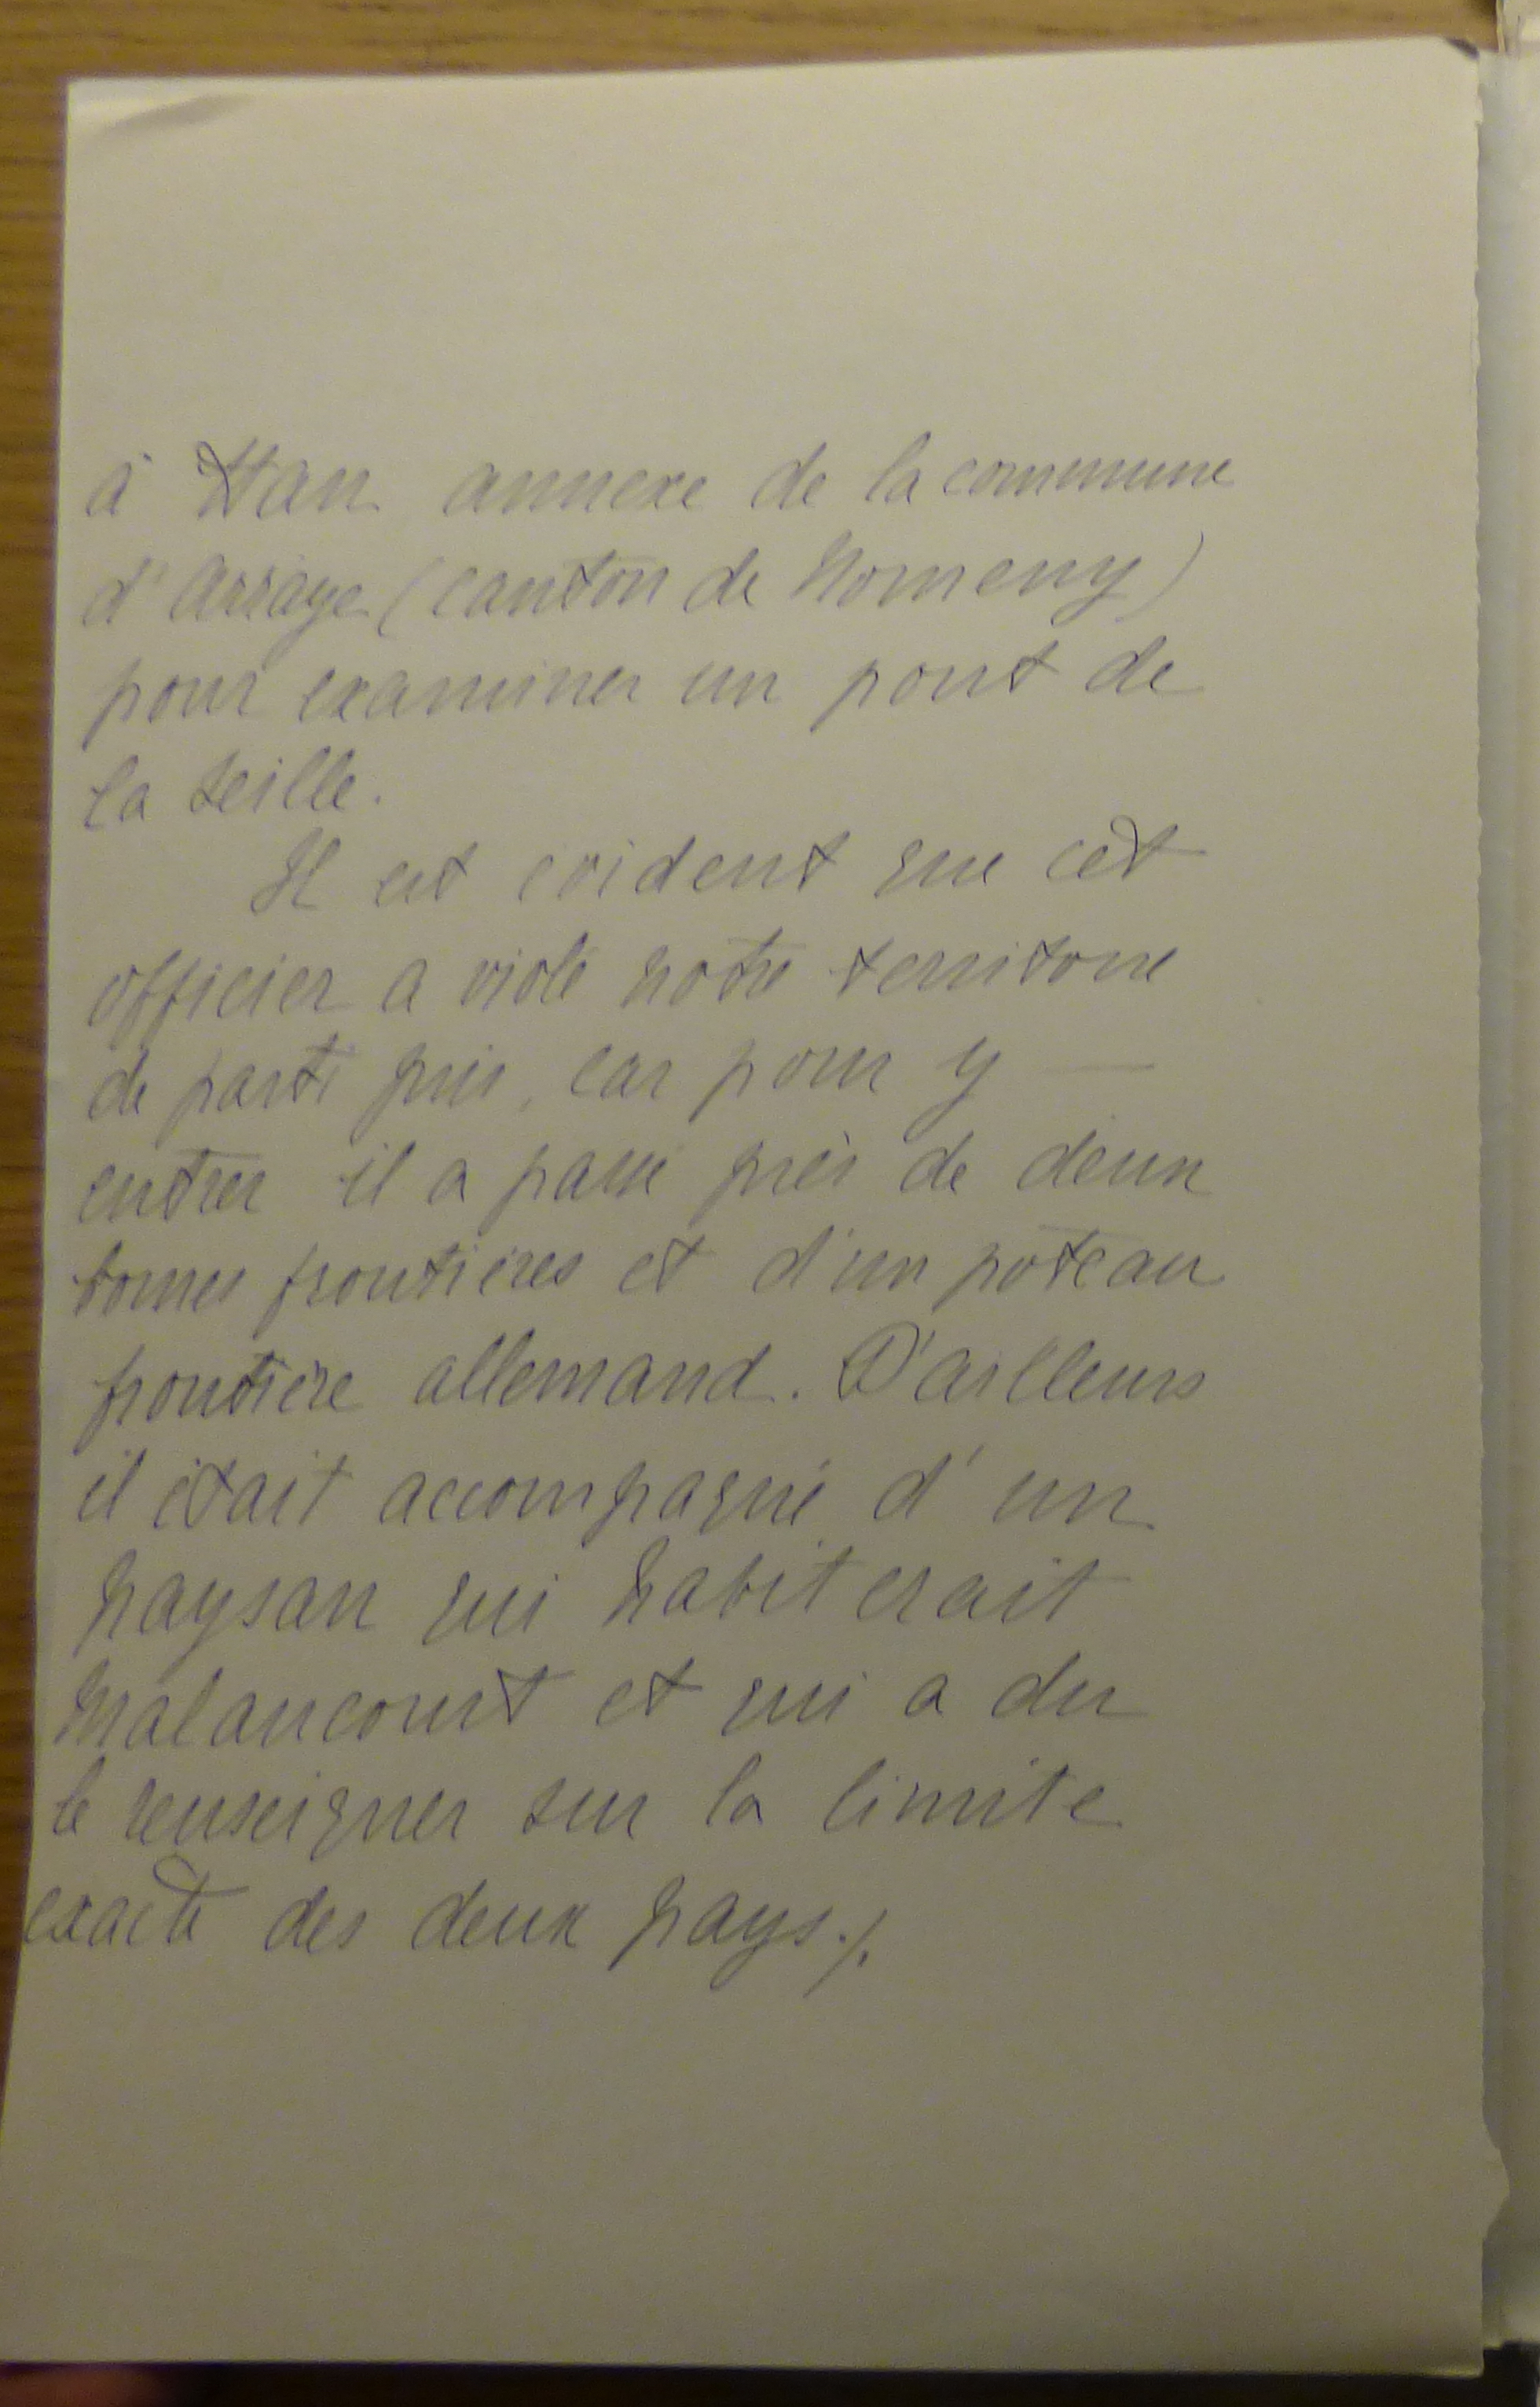 à Han annexe de la commune
d'Arraye (canton de Nomeny)
pour examiner un pont de
la Seille.
Il est évident que cet
officier a violé notre territoire
de parti pris, car pour y —
entrer il a passé près de deux
bornes frontières et d'un poteau
frontière allemand. D'ailleurs
il était accompagné d'un
paysan qui habiterait
Malaucourt et qui a du
le renseigner sur la limite
exacte des deux pays./.